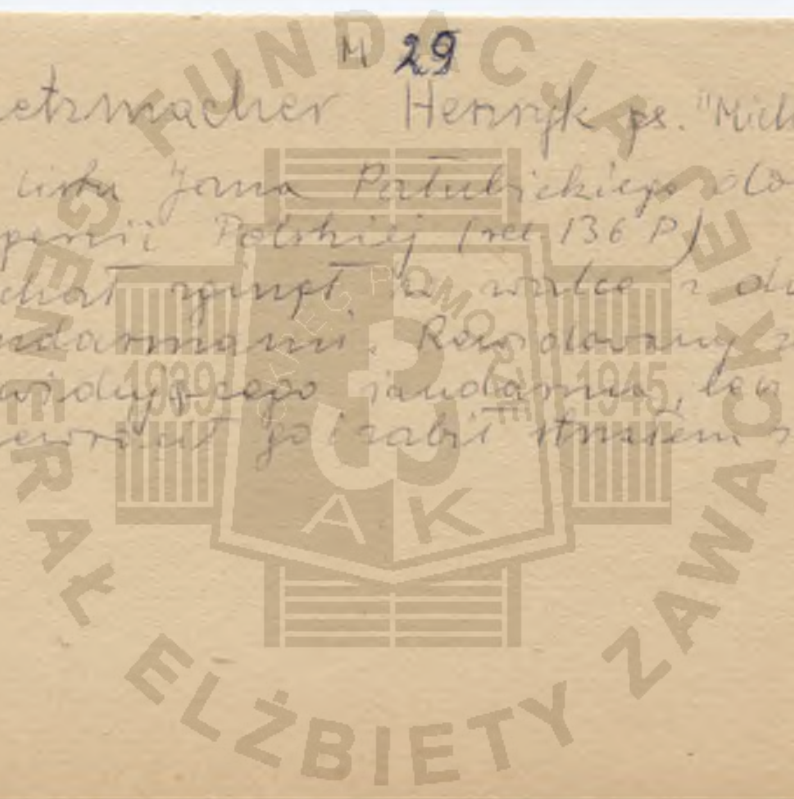 M 29
etzmacher Henryk ps. "Mich
listu Jana Pałubickiego do
Polskiej (rel 136 P)
chał zginął w walce z
ndarmami. Rewidowany
żandarma,
go i zabił strzałem
FUNDACJA
GENERAŁ ELŻBIETY ZAWACKIEJ
OKRĘG POMORZE
1939 1945
AK